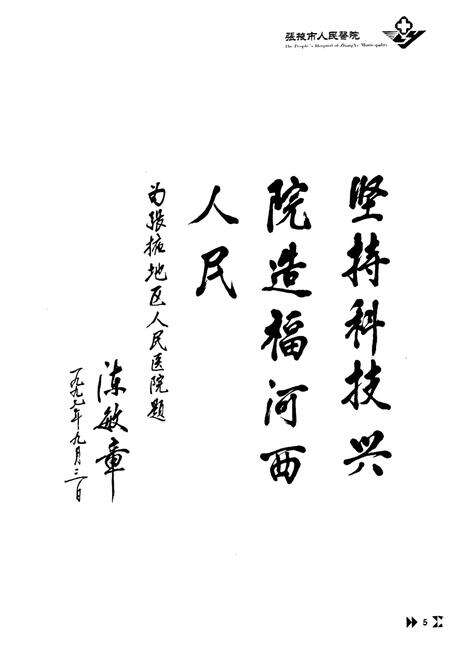 張掖市人民醫院
The People's Hospital of ZhangYe Municipality
坚持科技兴
院造福河西
人民
为张掖地区人民医院题
陈敏章
一九九七年九月三日
5